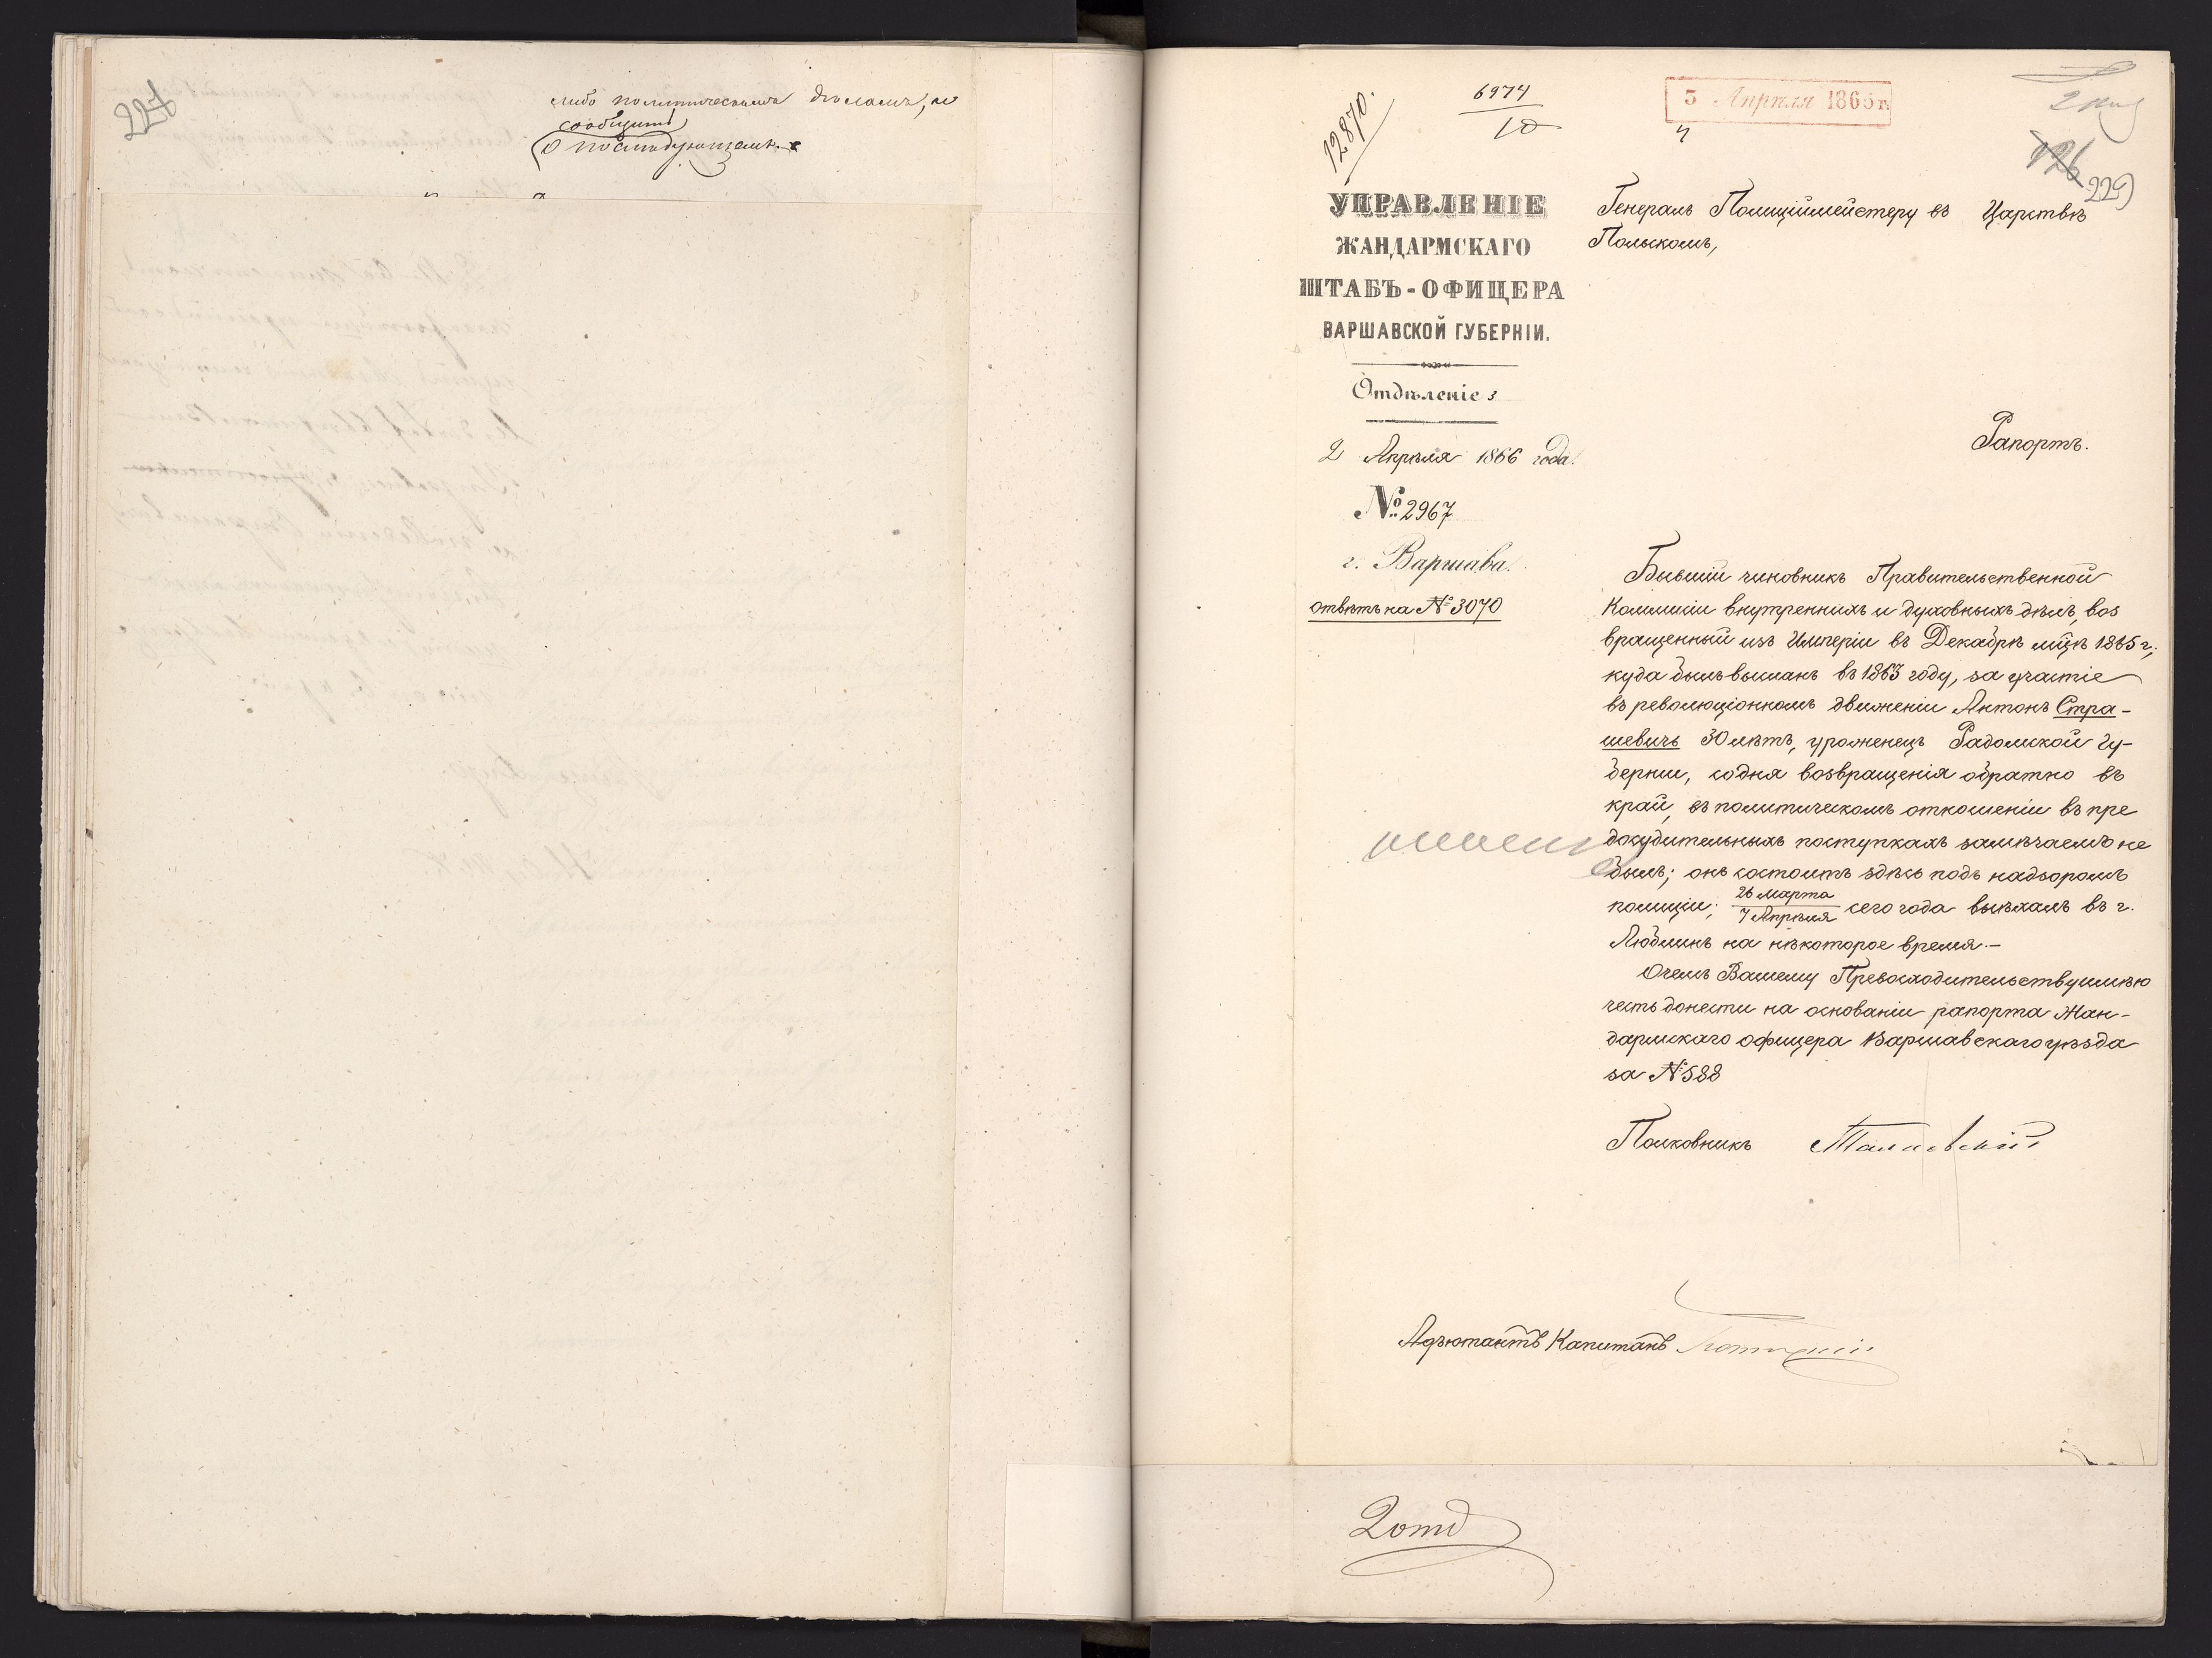 227
либо политическимъ дѣламъ, и
сообщить
о послѣдующемъ.
12870.
6974
10
5 Апрѣля 1865 г.
4
126
229
УПРАВЛЕНІЕ
ЖАНДАРМСКАГО
ШТАБЪ-ОФИЦЕРА
ВАРШАВСКОЙ ГУБЕРНІИ.
Отдѣленіе 3
2 Апрѣля 1866 года.
№ 2967
г. Варшава.
отвѣтъ на № 3070
Генералъ Полиціймейстеру въ Царствѣ
Польскомъ,
Рапортъ.
Бывшій чиновникъ Правительственной
Коммиссіи внутреннихъ и духовныхъ дѣлъ, воз
вращенный изъ Имперіи въ Декабрѣ мцѣ 1865 г.,
куда былъ высланъ въ 1863 году, за участіе
въ революціонномъ движеніи Антонъ Стра-
шевичъ 30 лѣтъ, уроженецъ Радомской гу-
берніи, со дня возвращенія обратно въ
край, въ политическомъ отношеніи въ пре
досудительныхъ поступкахъ замѣчаемъ не
былъ; онъ состоитъ здѣсь подъ надзоромъ
полиціи; 26 Марта / 7 Апрѣля сего года выѣхалъ въ г.
Люблинъ на нѣкоторое время.-
О чемъ Вашему Превосходительству имѣю
честь донести на основаніи рапорта Жан-
дармскаго офицера Варшавскаго уѣзда
за № 588
Полковникъ
Адъютантъ Капитанъ
2 отд